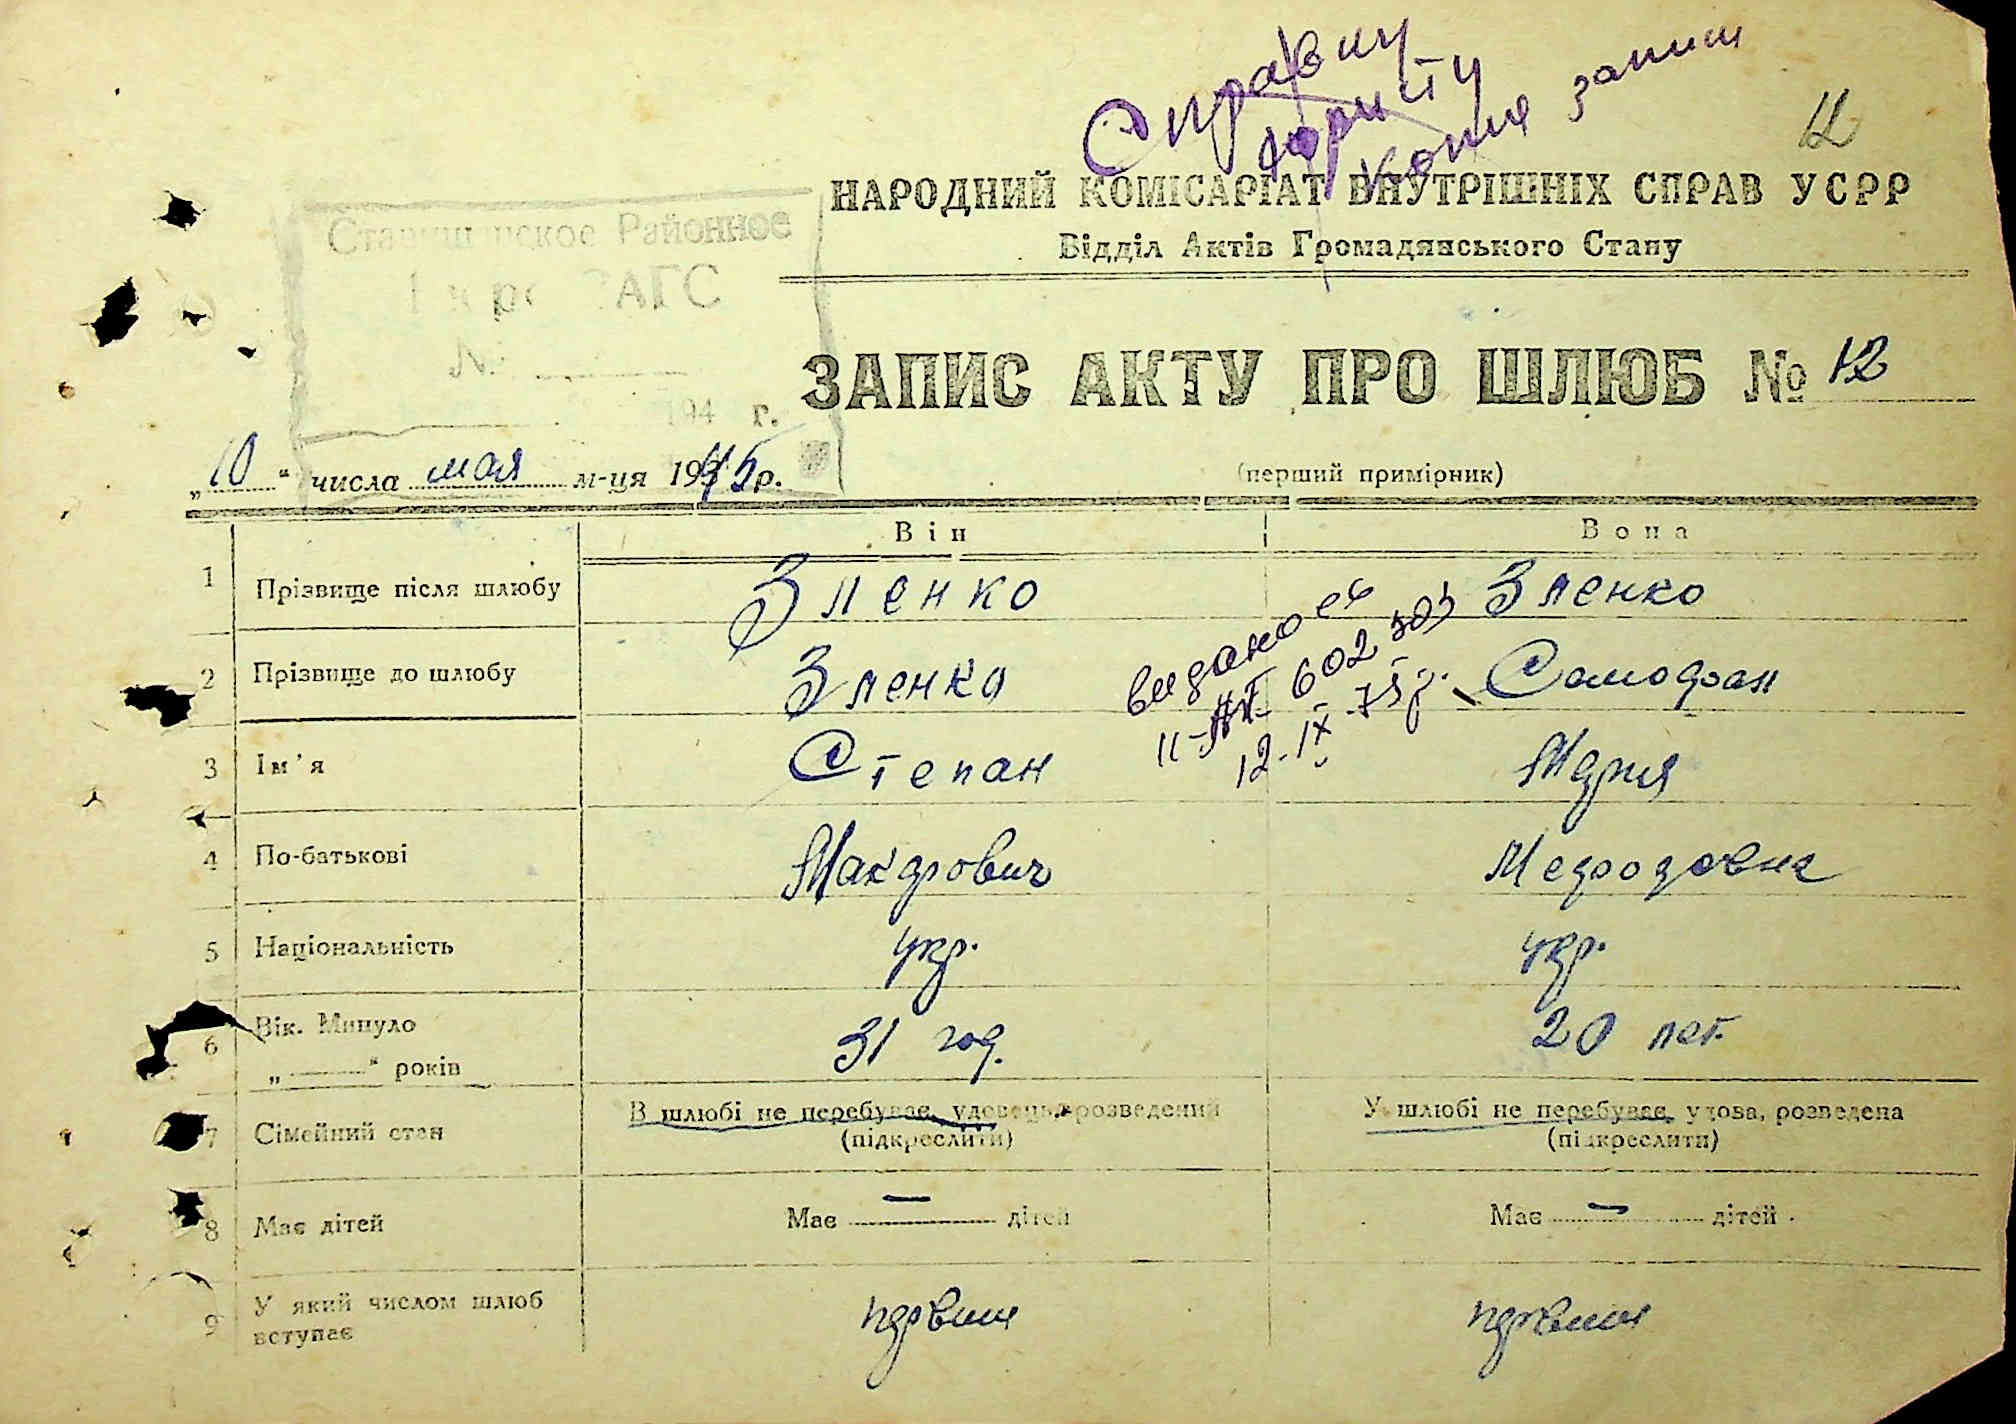 Справку
юристу
копия запис
12
НАРОДНИЙ КОМІСАРІАТ ВНУТРІШНІХ СПРАВ УСРР
Відділ Актів Громадянського Стану
Районное
ЗАГС
№
194 г.
ЗАПИС АКТУ ПРО ШЛЮБ № 12
„10“ числа мая м-ця 1945 р.
(перший примірник)
Він Вона
1 Прізвище після шлюбу Зленко Зленко
видано св
II-
602
12-IX-75 г.
2 Прізвище до шлюбу Зленко
3 Ім'я Степан Мария
4 По-батькові Макарович
5 Національність укр. укр.
6 Вік. Минуло 31 год. 20 лет.
„ “ років
7 Сімейний стан В шлюбі не перебуває, удовець, розведений У шлюбі не перебуває, удова, розведена
(підкреслити) (підкреслити)
8 Має дітей Має — дітей Має — дітей
9 У який числом шлюб первый первый
вступає